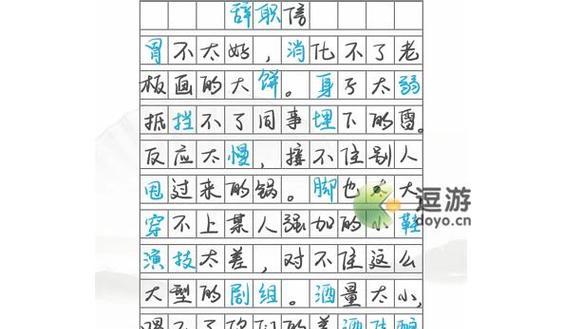 辞职信
胃不太好，消化不了老
板画的大饼。身子太弱
抵挡不了同事埋下的雷。
反应太慢，接不住别人
甩过来的锅。脚也太大
穿不上某人强加的小鞋
演技太差，对不住这么
大型的剧组。酒量太小，
喝不了你们的美酒佳酿
逗游
doyo.cn